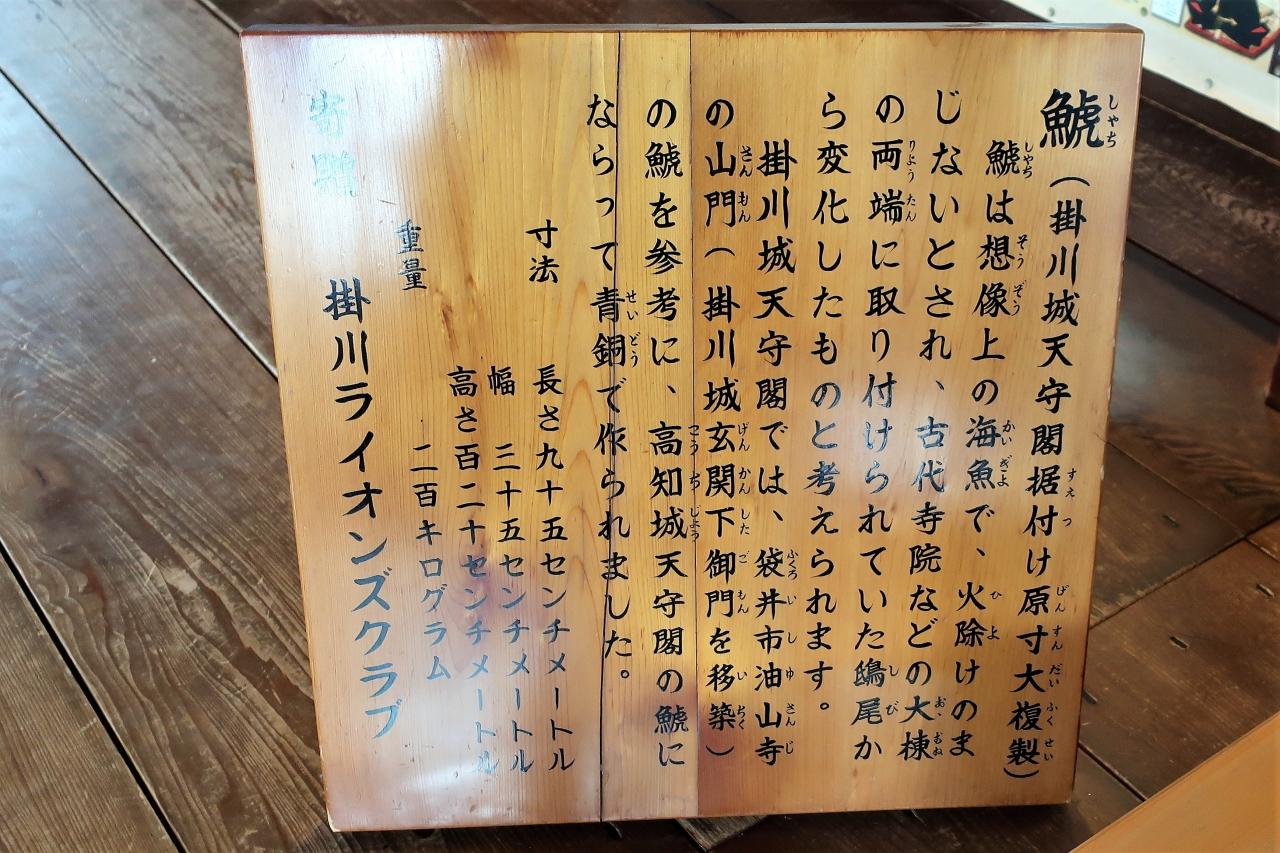 鯱（掛川城天守閣据付け原寸大複製）
鯱は想像上の海魚で、火除けのま
じないとされ、古代寺院などの大棟
の両端に取り付けられていた鴟尾か
ら変化したものと考えられます。
掛川城天守閣では、袋井市油山寺
の山門（掛川城玄関下御門を移築）
の鯱を参考に、高知城天守閣の鯱に
ならって青銅で作られました。
寸法　長さ九十五センチメートル
幅　三十五センチメートル
高さ百二十センチメートル
重量　二百キログラム
寄贈　掛川ライオンズクラブ